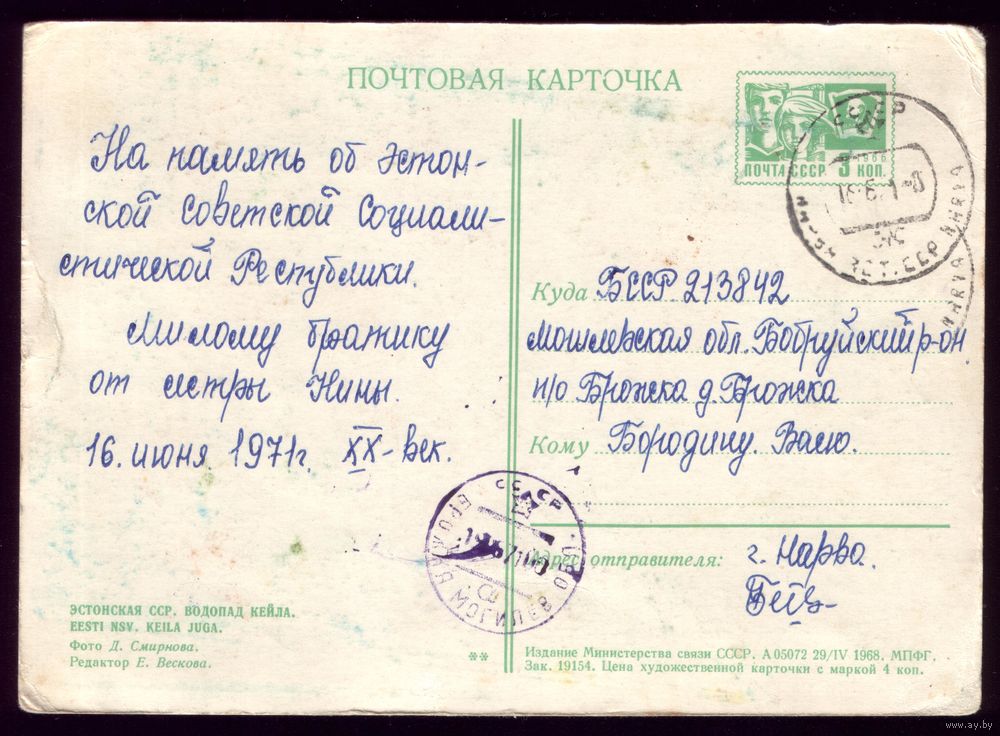 ПОЧТОВАЯ КАРТОЧКА
На память об Эстон-
ской Советской Социали-
стической Республики.
Милому братику
от сестры Нины.
16. июня 1971г. XX- век.
1966
ПОЧТА СССР 3 КОП.
СССР
ЭСТ. ССР
Куда БССР 213842
Могилевская обл. Бобруйский р-он.
п/о Брожка д. Брожка
Кому Бородину. Васю.
СССР
МОГИЛЕВ
Адрес отправителя: г. Нарва.
ЭСТОНСКАЯ ССР. ВОДОПАД КЕЙЛА.
EESTI NSV. KEILA JUGA.
Фото Д. Смирнова.
Редактор Е. Вескова.
**
Издание Министерства связи СССР. А 05072 29/IV 1968. МПФГ.
Зак. 19154. Цена художественной карточки с маркой 4 коп.
www.ay.by